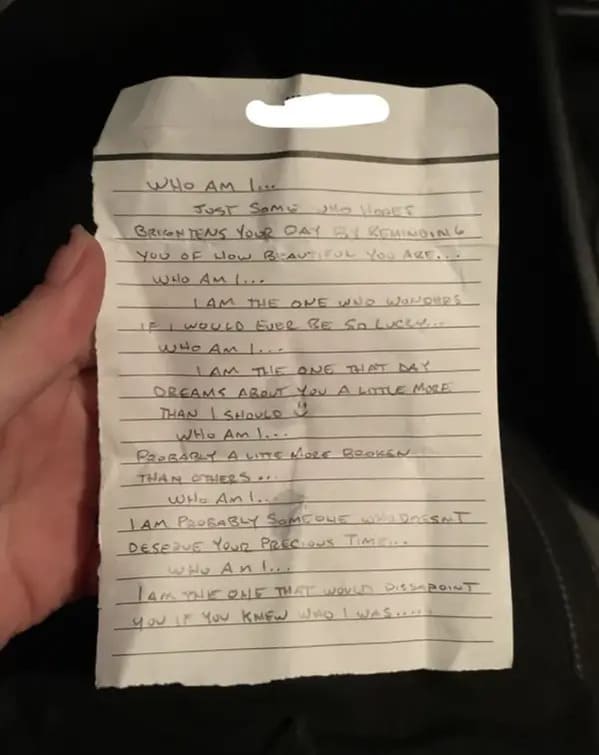 WHO AM I...
JUST SOME WHO HOPES
BRIGHTENS YOUR DAY BY REMINDING
YOU OF HOW BEAUTIFUL YOU ARE...
WHO AM I...
I AM THE ONE WHO WONDERS
IF I WOULD EVER BE SO LUCKY...
WHO AM I...
I AM THE ONE THAT DAY
DREAMS ABOUT YOU A LITTLE MORE
THAN I SHOULD
WHO AM I...
PROBABLY A LITTE MORE BROKEN
THAN OTHERS...
WHO AM I...
I AM PROBABLY SOMEONE WHO DOESNT
DESERVE YOUR PRECIOUS TIME...
WHO AM I...
I AM THE ONE THAT WOULD DISSAPOINT
YOU IF YOU KNEW WHO I WAS.....